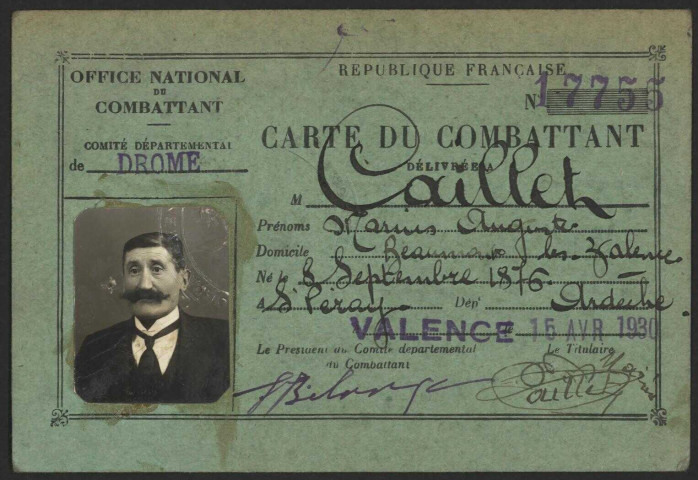 OFFICE NATIONAL
DU
COMBATTANT
COMITÉ DÉPARTEMENTAL
de DROME
RÉPUBLIQUE FRANÇAISE
N° 17755
CARTE DU COMBATTANT
DÉLIVRÉE A
M Caillet
Prénoms Marius Auguste
Domicile Beaumont les Valence
Né le 8 Septembre 1876
à St Péray Dép' Ardèche
VALENCE le 15 AVR 1930
Le Président du Comité départemental
du Combattant
Le Titulaire
Caillet Marius